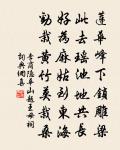 蓮華峰下鎖雕梁
此去瑤池地共長
好為麻姑到東海
勸栽黃竹莫栽桑
李商隱華山題王母祠